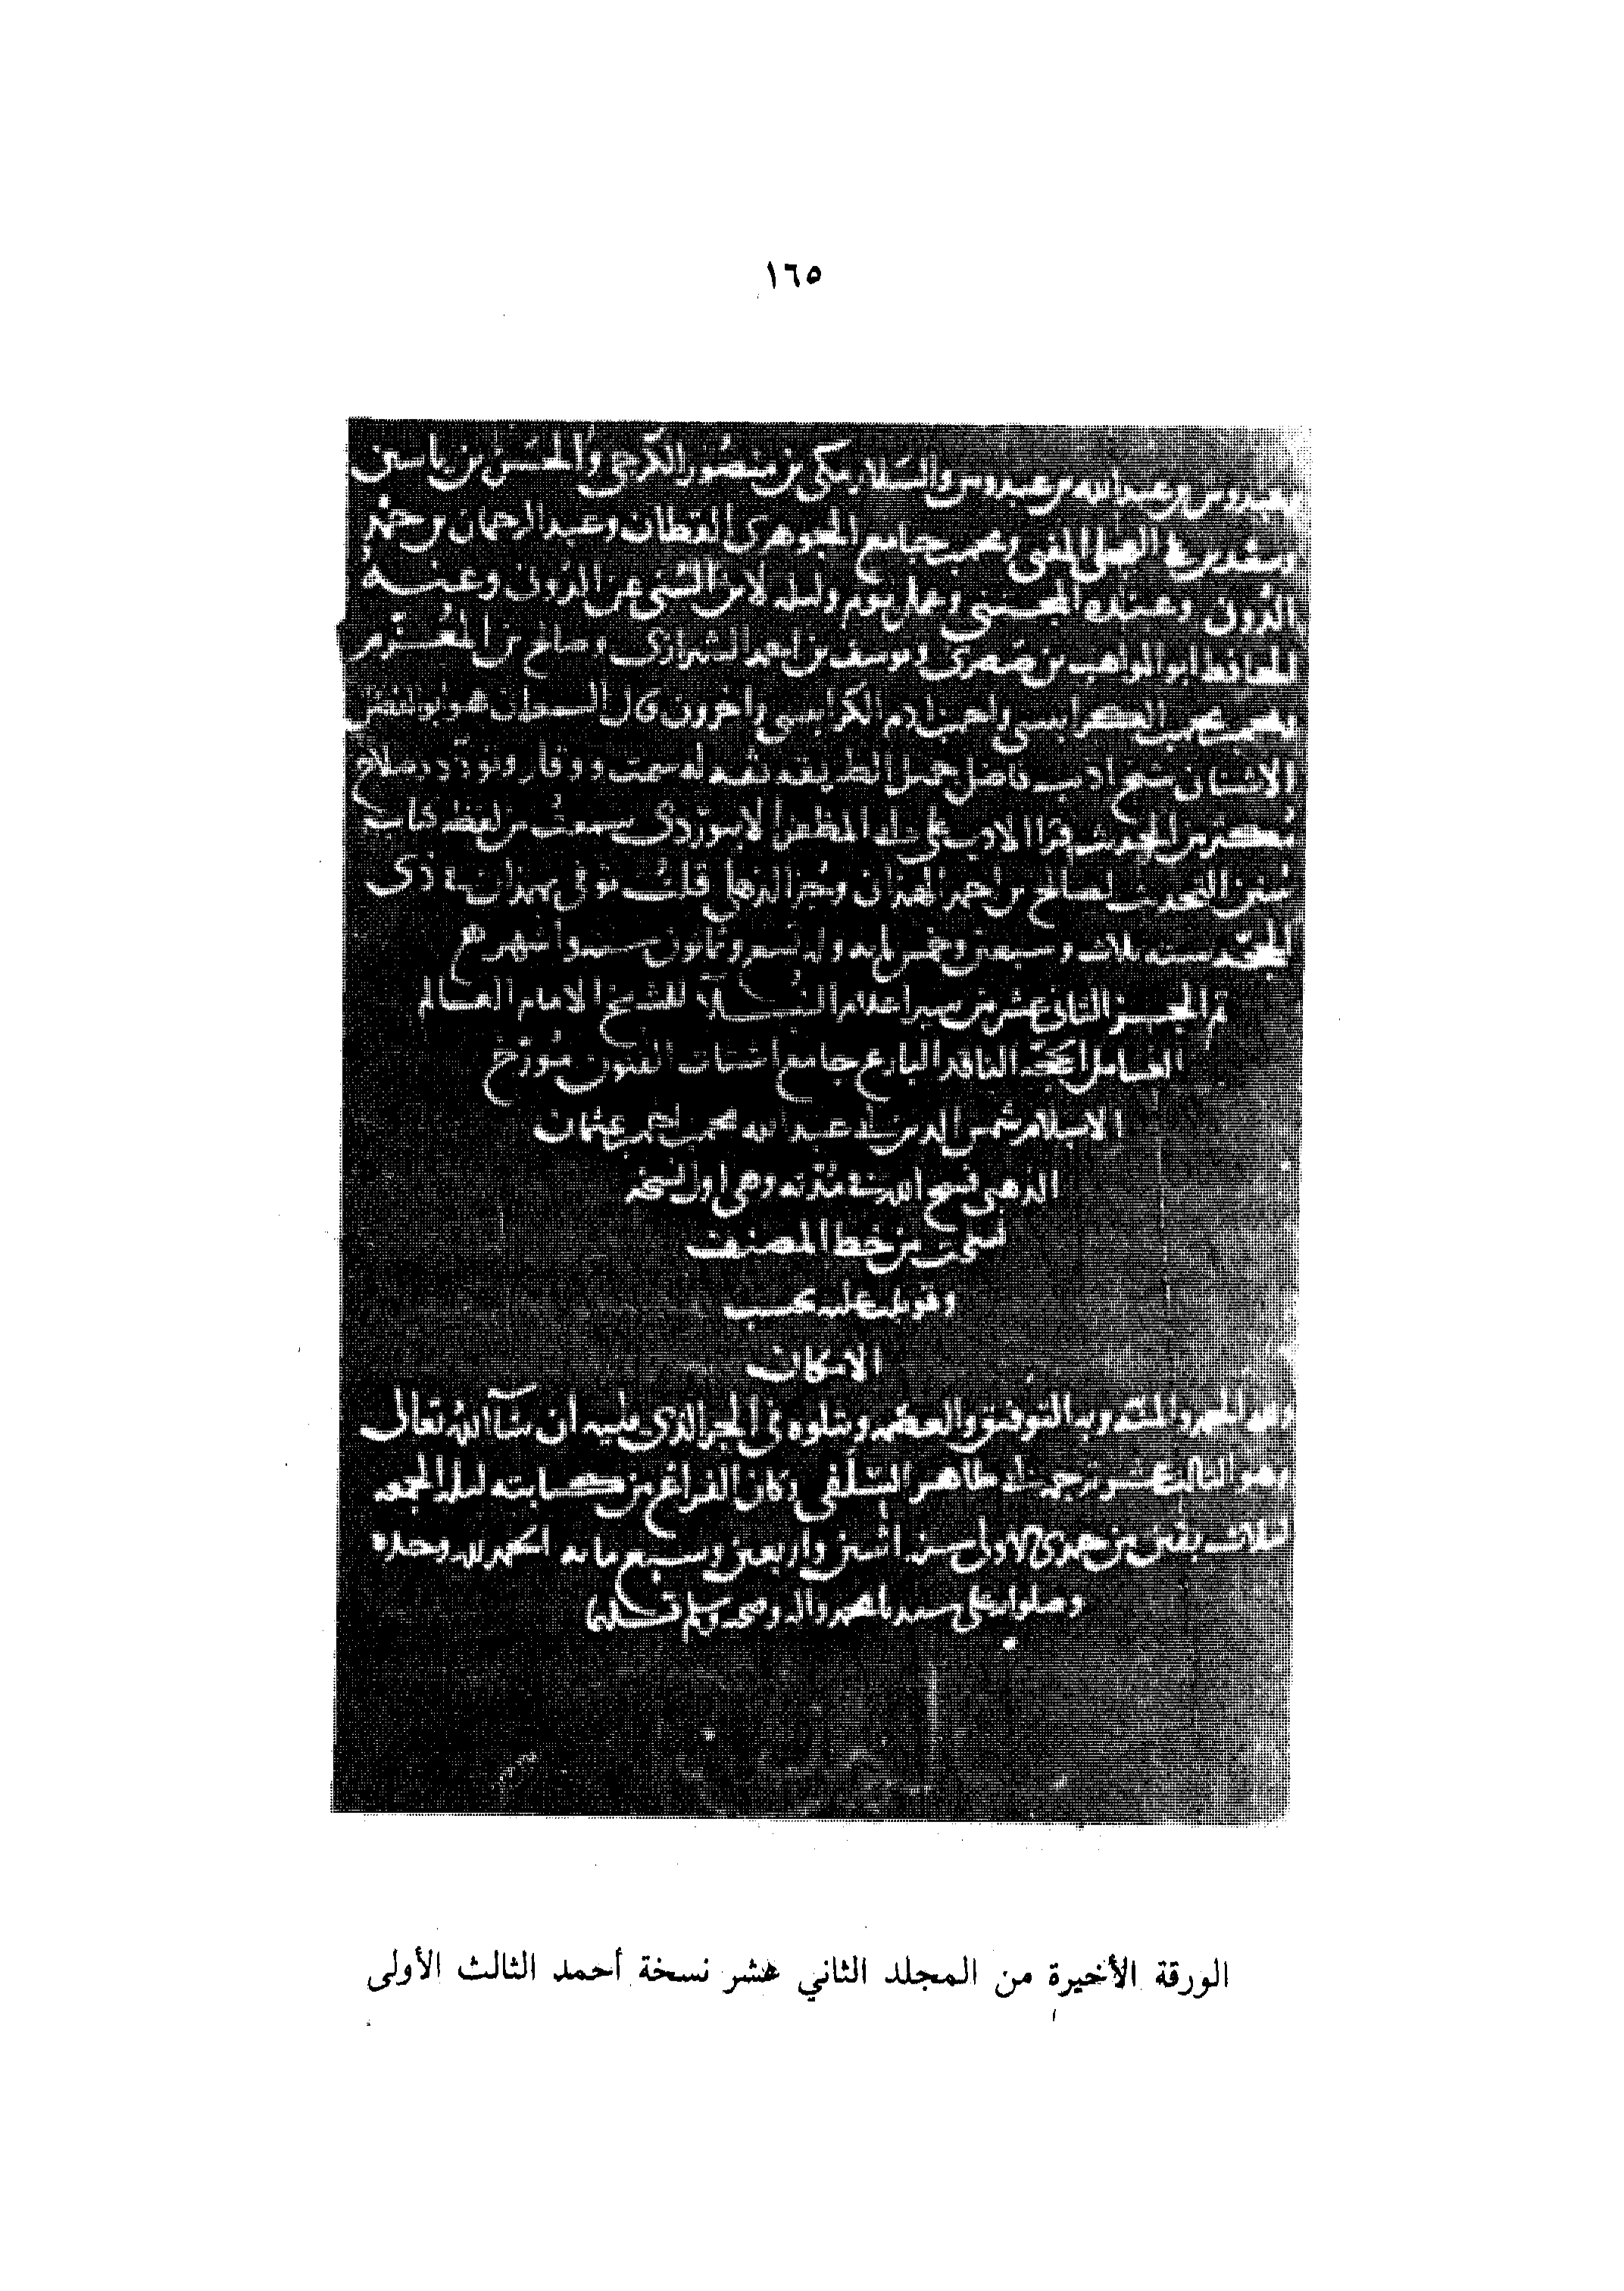 ١٦٥
عبدوس وعبد الله بن عبدوس والسلار مكي بن منصور الكرجي والحسن بن ياسين
وعبد الرحمان بن حمد
الدوني وعنده المجتبى وعمل يوم وليلة لابن السني عن الدوني وعنه
الحافظ ابو المواهب بن صصرى ويوسف بن احمد الشيرازي وصالح بن المعزم
الكرابيسي واخرون قال السمعاني هو ابو الفضل
الاسناني شيخ اديب فاضل جميل الطريقة له سمت ووقار وتودد وصلاح
الحديث قرا الادب على ابي المظفر الابيوردي سمعت من لفظه كتاب
سنن التحديث لصالح بن احمد الهمذاني قلت توفي بهمذان في
الحجة سنة ثلاث وسبعين وخمس مايه وله تسع وثمانون سنه
تم الجزء الثاني عشر من سير اعلام النبلاء للشيخ الامام العالم
العامل الحجة الناقد البارع جامع اشتات الفنون مؤرخ
الاسلام شمس الدين ابي عبد الله محمد بن احمد بن عثمان
الذهبي فسح الله في مدته وهي اول نسخة
نسخت من خط المصنف
وقوبلت عليه بحسب
الامكان
ولله الحمد والمنة وبه التوفيق والعصمة ويتلوه في الجزء الذي يليه ان شاء الله تعالى
وهو الثالث عشر ترجمة ابي طاهر السلفي وكان الفراغ من كتابته ليلة الجمعه
لثلاث بقين من جمدى الاولى سنة اثنتين واربعين وسبع مائه الحمد لله وحده
وصلواته على سيدنا محمد واله وصحبه وسلم تسليما
الورقة الأخيرة من المجلد الثاني عشر نسخة أحمد الثالث الأولى